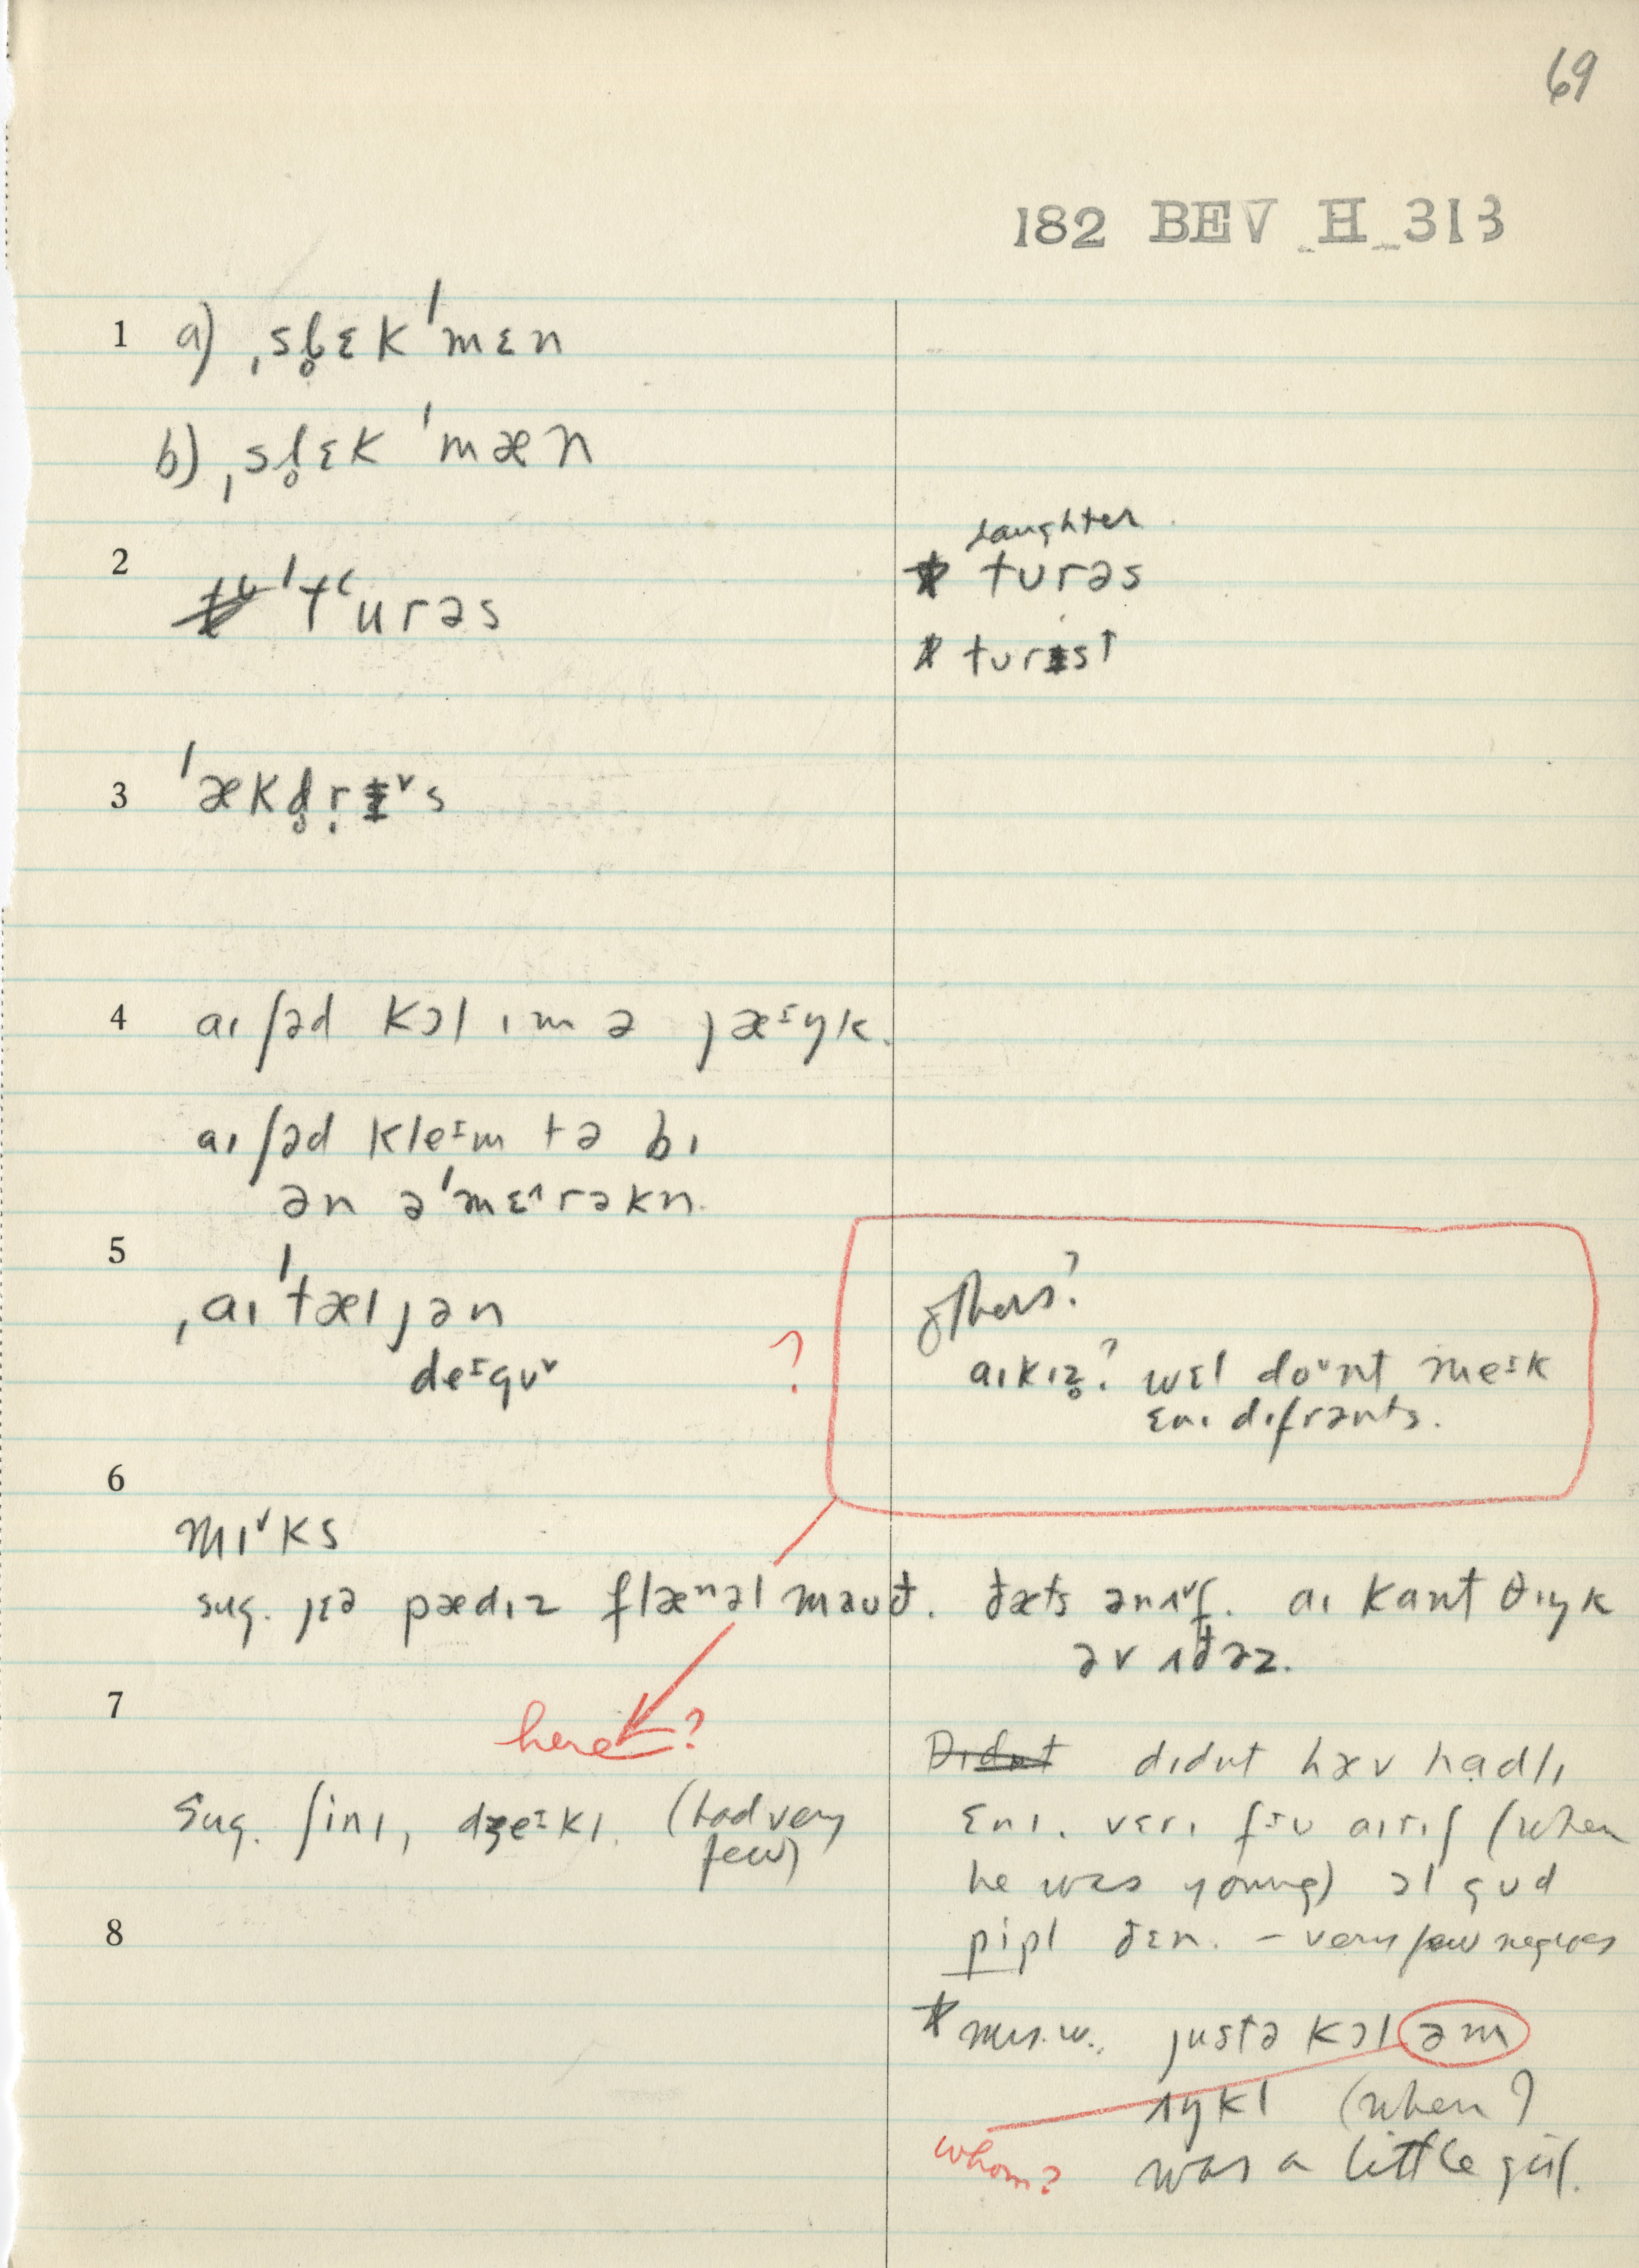 69
182 BEV H 313
1 a) ˌsl̥ɛk ˈmɛn
b) ˌsl̥ɛk ˈmæn
2 ˈtʻurəs
laughter
* turəs
* turɪst
3 ˈækd̥r̥ɪ˅s
4 aɪ ʃəd kɔl ɪm ə jæᶦŋk.
aɪ ʃəd kleᶦm tə bɪ
ən əˈmɛ˄rəkn.
5 ˌaɪˈtæljən
deᶦgʊ˅
?
others?
aɪkɪz̥? wɛl doʊnt meᶦk
ɛnɪ dɪfrənts.
6
mɪ˅ks
sug. jɛə pædɪz flænəl maʊð. ðæts ənʌ˅f. aɪ kant θɪŋk
əv ʌðəz.
7
here?
Sug. ʃinɪ, dʒeᶦkɪ. (had very
few)
Didnt dɪdnt hæv hadlɪ
ɛnɪ. vɛrɪ fɪu aɪrɪʃ (when
he was young) ɔl gud
pipl ðɛn. – very few negroes
8
* Mrs. W., justə kɔl əm
ʌŋkl (when?
whom? was a little girl.